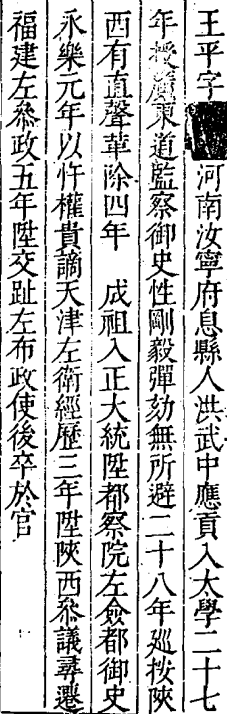 王平字河南汝寧府息縣人洪武中應貢入太學二十七
年授廣東道監察御史性剛毅彈劾無所避二十八年廵按陝
西有直聲革除四年　成祖入正大統陞都察院左僉都御史
永樂元年以忤權貴謫天津左衛經歷三年陞陝西叅議尋遷
福建左叅政五年陞交趾左布政使後卒於官